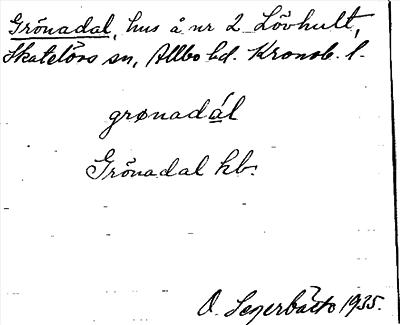 Grönadal, hus å nr 2 Lövhult,
Skatelövs sn, Allbo hd. Kronob. l.
grønadál
Grönadal kb.
O. Segerbäcko 1935.